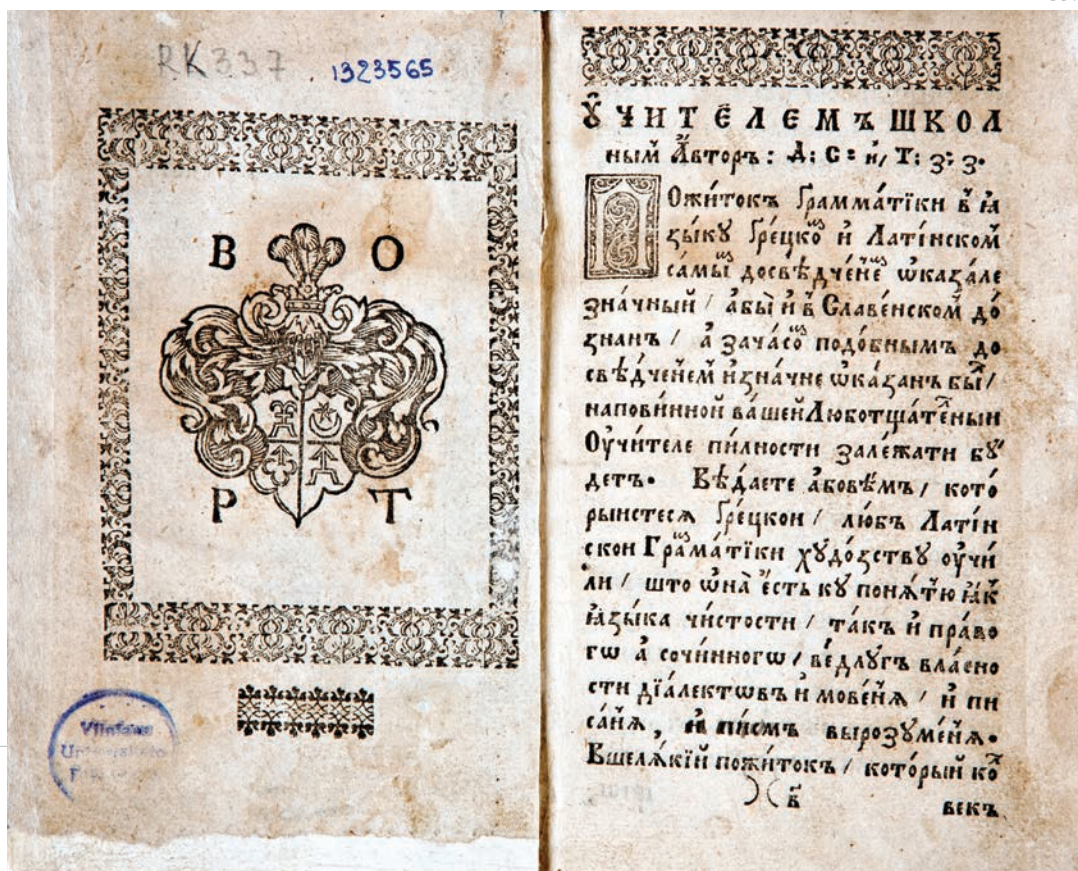 RK337 1323565
В О
Р Т
Vilniaus
ОУ҆ЧИТЕЛЕМЪ ШКОЛ
ным А҆вторъ : Д: С: и҆, Т: З: З.
ПОжи́токъ Грамма́тїки в̾ ꙗ҆
зы́кꙋ Гре́цком̾ и҆ Лати́нском
самы́м досвѣ́дче́нем̾ ѡ҆каза́ле
зна́чный / абы̀ и҆ в̾ Славе́нском до́
знанъ / а҆ зача́сом подо́бнымъ до
свѣ́дченем и҆ зна́чне ѡ҆ка́занъ был /
напови́нной ва́шей Люботща́телныи
Оу҆чи́теле пи́лности зале́жати бꙋ́
детъ. Вѣ́даете а҆бовѣ́мъ / кото
рыистеся Гре́цкои / лю́бъ Лати́н
скои Грама́тїки хꙋдо́зствꙋ оу҆чи́
ли / што ѡ҆на̀ є҆сть кꙋ поня́тю ꙗ҆́к
ꙗ҆зы́ка чи́стости / та́къ и҆ пра́во
гѡ а҆ сочи́нногѡ / ве́длꙋгъ вла́сно
сти дїа́лектѡвъ и҆ мове́ня / и҆ пи
са́ня, и҆ писмъ вырозꙋме́ня.
Вшеля́кїй пожи́токъ / кото́рый кол
)( в̃
векъ